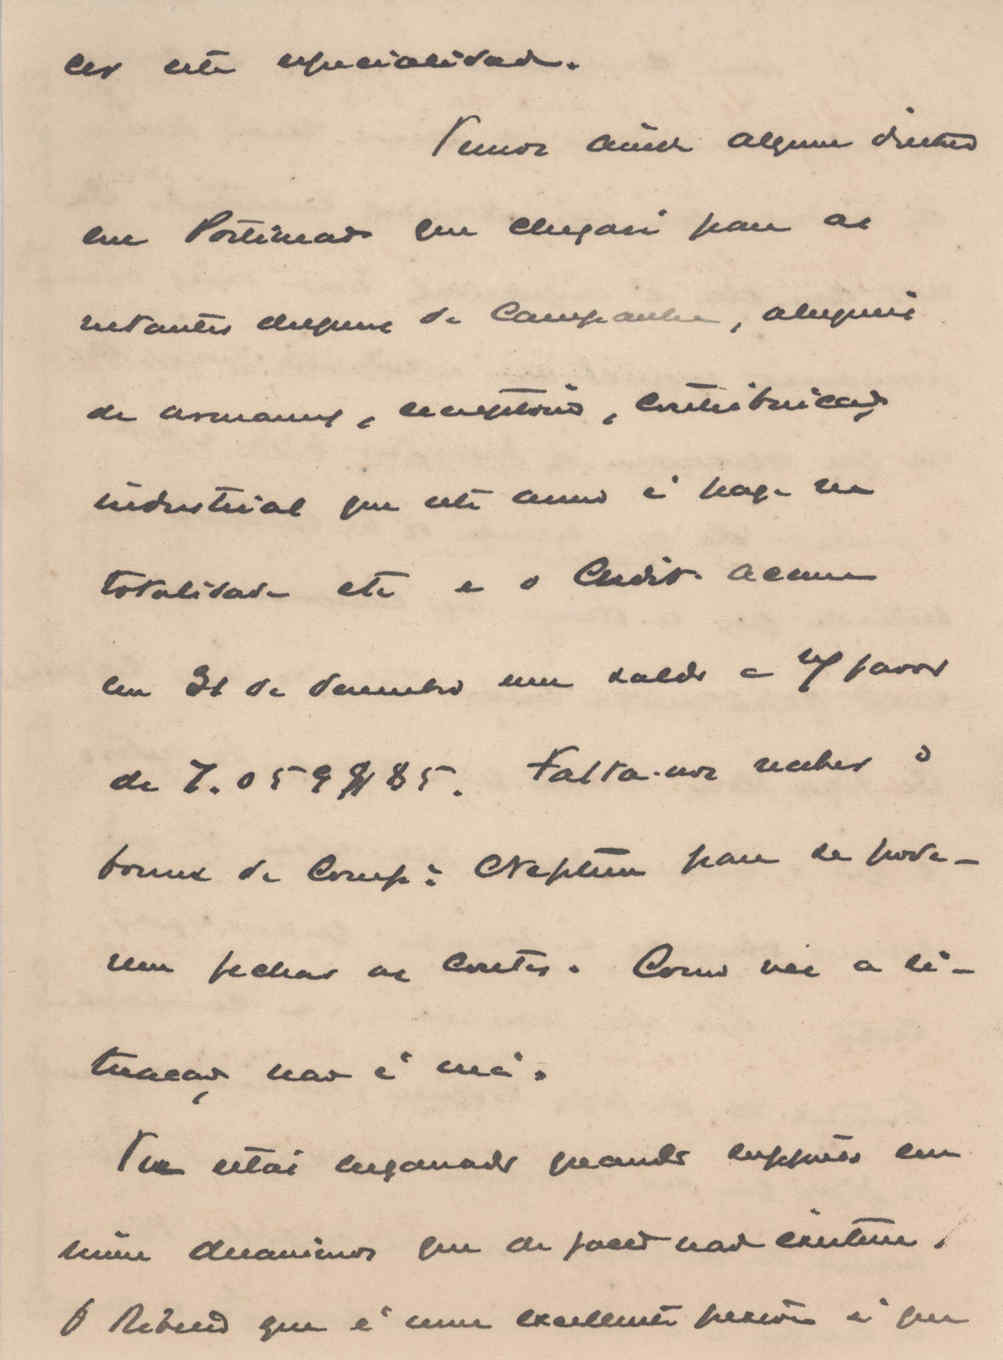 cer esta especialidade.
Temos ainda algum dinheiro
em Portimão que chegará para as
restantes despezas de Campanha, alugueis
de armazens, escriptorio, contribuição
industrial que este anno é paga na
totalidade etc e o Credito accusa
em 31 de dezembro um saldo a n/ favor
de 7.059$85. Falta-nos receber o
bonus da Comp.ª Neptun para se pode-
rem fechar as contas. Como vês a si-
tuação não é má.
Tu estás enganado quando suppões em
mim desanimos que de facto não existem.
O Ribeiro que é uma excellente pessoa é que